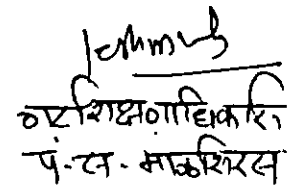 गटशिक्षणाधिकारी
पं.स. माळशिरस